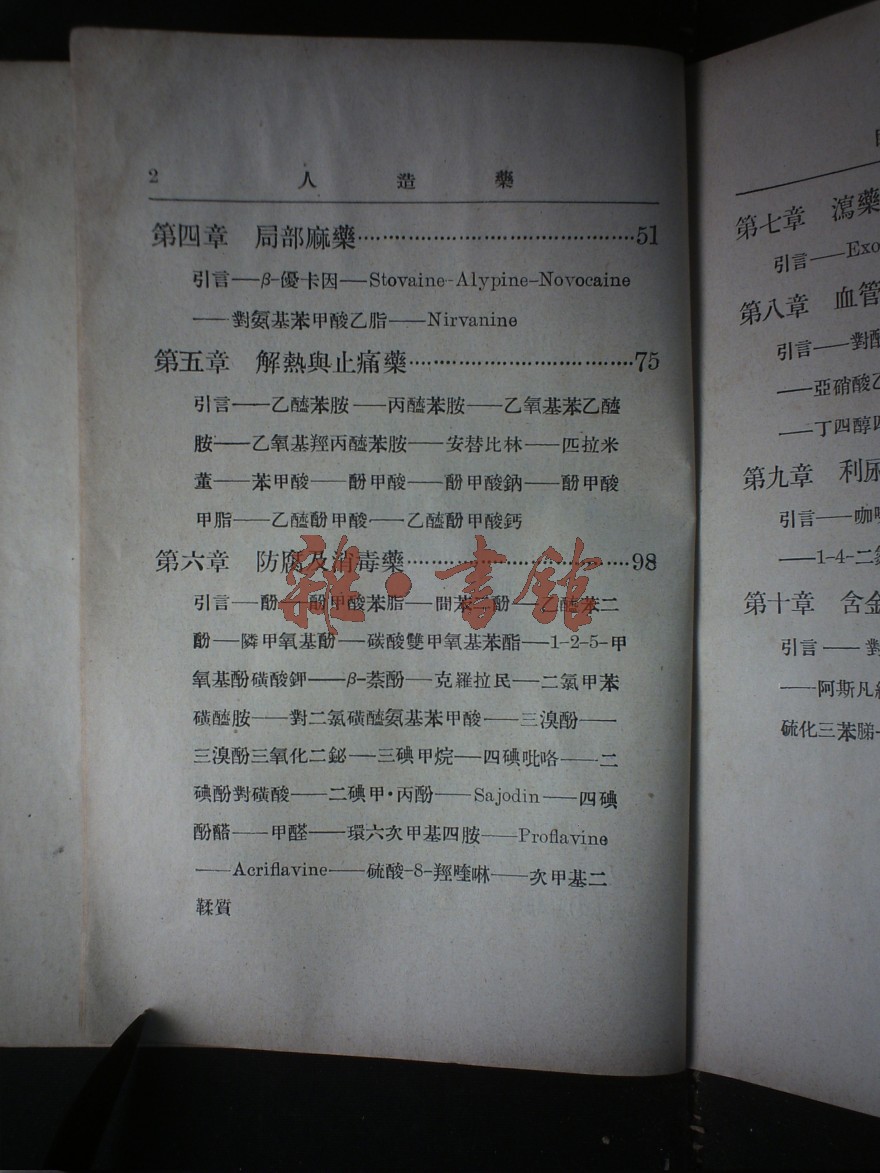 2 人造藥
第四章 局部麻藥……………………………………51
引言——β-優卡因——Stovaine-Alypine-Novocaine
——對氨基苯甲酸乙脂——Nirvanine
第五章 解熱與止痛藥……………………………75
引言——乙醯苯胺——丙醯苯胺——乙氧基苯乙醯
胺——乙氧基羥丙醯苯胺——安替比林——匹拉米
董——苯甲酸——酚甲酸——酚甲酸鈉——酚甲酸
甲脂——乙醯酚甲酸——乙醯酚甲酸鈣
第六章 防腐及消毒藥……………………………98
引言——酚——酚甲酸苯脂——間苯二酚——乙醯苯二
酚——隣甲氧基酚——碳酸雙甲氧基苯酯——1-2-5-甲
氧基酚磺酸鉀——β-萘酚——克羅拉民——二氯甲苯
磺醯胺——對二氯磺醯氨基苯甲酸——三溴酚——
三溴酚三氧化二鉍——三碘甲烷——四碘吡咯——二
碘酚對磺酸——二碘甲·丙酚——Sajodin——四碘
酚醋——甲醛——環六次甲基四胺——Proflavine
——Acriflavine——硫酸-8-羥喹啉——次甲基二
鞣質
雜·書館
第七章 瀉藥
引言——Exo
第八章 血管
引言——對
——亞硝酸乙
——丁四醇四
第九章 利尿
引言——咖
——1-4-二
第十章 含金
引言——對
——阿斯凡
硫化三苯䏲-